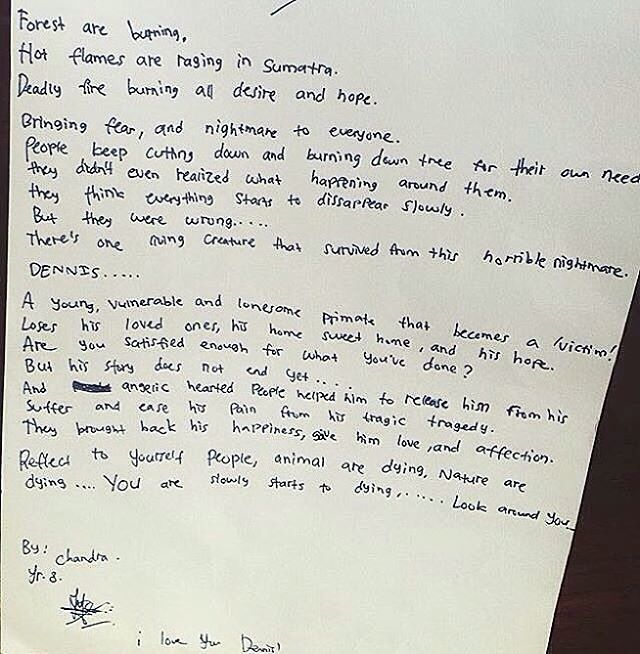 Forest are burning,
Hot flames are raging in Sumatra.
Deadly fire burning all desire and hope.
Bringing fear, and nightmare to everyone.
People keep cutting down and burning down tree for their own need
they didn't even realized what happening around them.
they think everything starts to dissappear slowly.
But they were wrong.....
There's one living creature that survived from this horrible nightmare.
DENNIS.....
A young, vulnerable and lonesome primate that becomes a victim!
Loses his loved ones, his home sweet home, and his hope.
Are you satisfied enough for what you've done?
But his story does not end yet....
And angelic hearted people helped him to release him from his
suffer and ease his pain from his tragic tragedy.
They brought back his happiness, give him love, and affection.
Reflect to yourself people, animal are dying, Nature are
dying .... You are slowly starts to dying,..... Look around you
By: Chandra.
Yr. 8.
i love you Dennis!